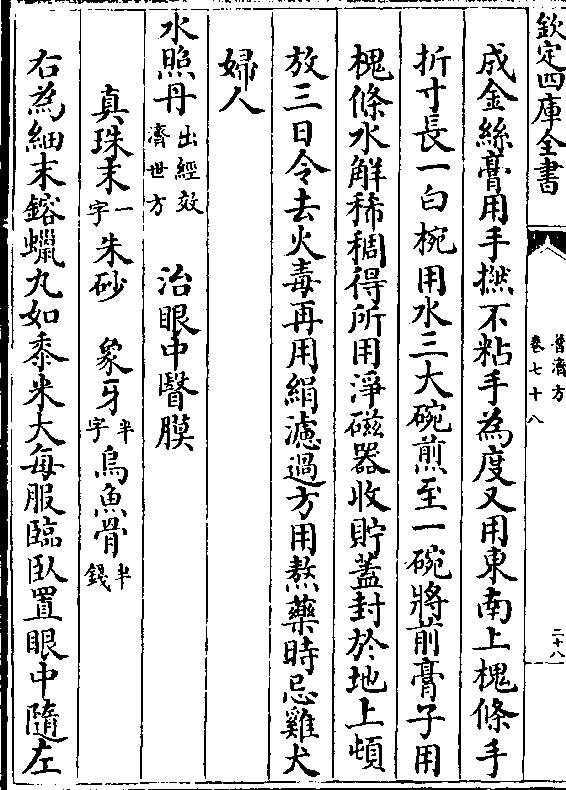 欽定四庫全書
普濟方
卷七十八
二十八
成金絲膏用手撚不粘手為度又用東南上槐條手
折寸長一白椀用水三大碗煎至一碗將前膏子用
槐條水解稀稠得所用淨磁器收貯蓋封於地上頓
放三日令去火毒再用絹濾過方用熬藥時忌雞犬
婦人
水照丹出經效濟世方 治眼中瞖膜
真珠末一字 朱砂 象牙半字 烏魚骨半錢
右為細末鎔蠟丸如黍米大每服臨臥置眼中隨左